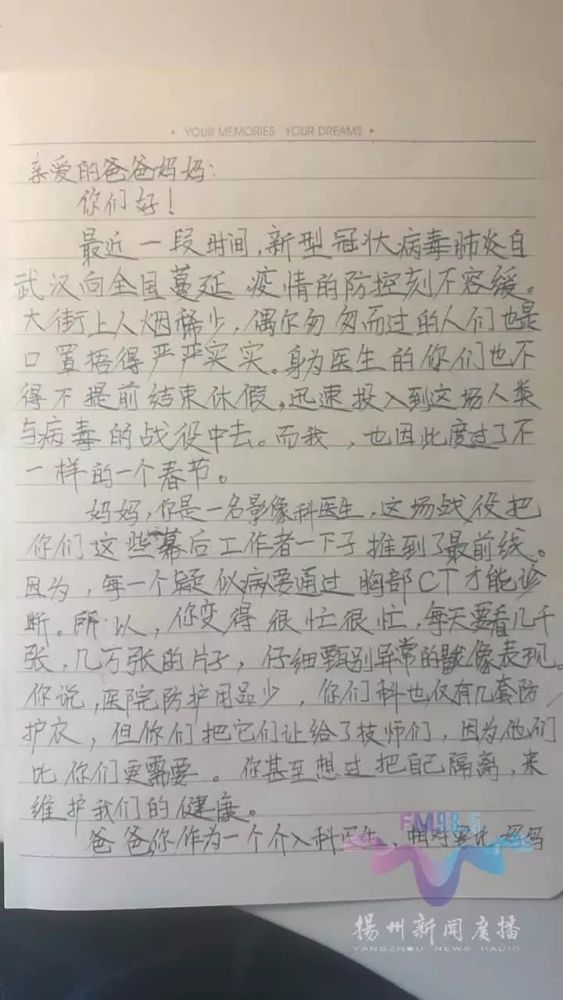 • YOUR MEMORIES YOUR DREAMS •
亲爱的爸爸妈妈：
你们好！
最近一段时间，新型冠状病毒肺炎自
武汉向全国蔓延，疫情的防控刻不容缓。
大街上人烟稀少，偶尔匆匆而过的人们也是
口罩捂得严严实实。身为医生的你们也不
得不提前结束休假，迅速投入到这场人类
与病毒的战役中去。而我，也因此度过了不
一样的一个春节。
妈妈，你是一名影像科医生，这场战役把
你们这些幕后工作者一下子推到了最前线。
因为，每一个疑似病要通过胸部CT才能诊
断。所以，你变得很忙很忙，每天要看几千
张，几万张的片子，仔细甄别异常的影像表现。
你说，医院防护用品少，你们科也仅有几套防
护衣，但你们把它们让给了技师们，因为他们
比你们更需要。你甚至想过把自己隔离，来
维护我们的健康。
爸爸，你作为一个介入科医生，相对要比妈妈
FM98.5
揚州新闻廣播
YANGZHOU NEWS RADIO